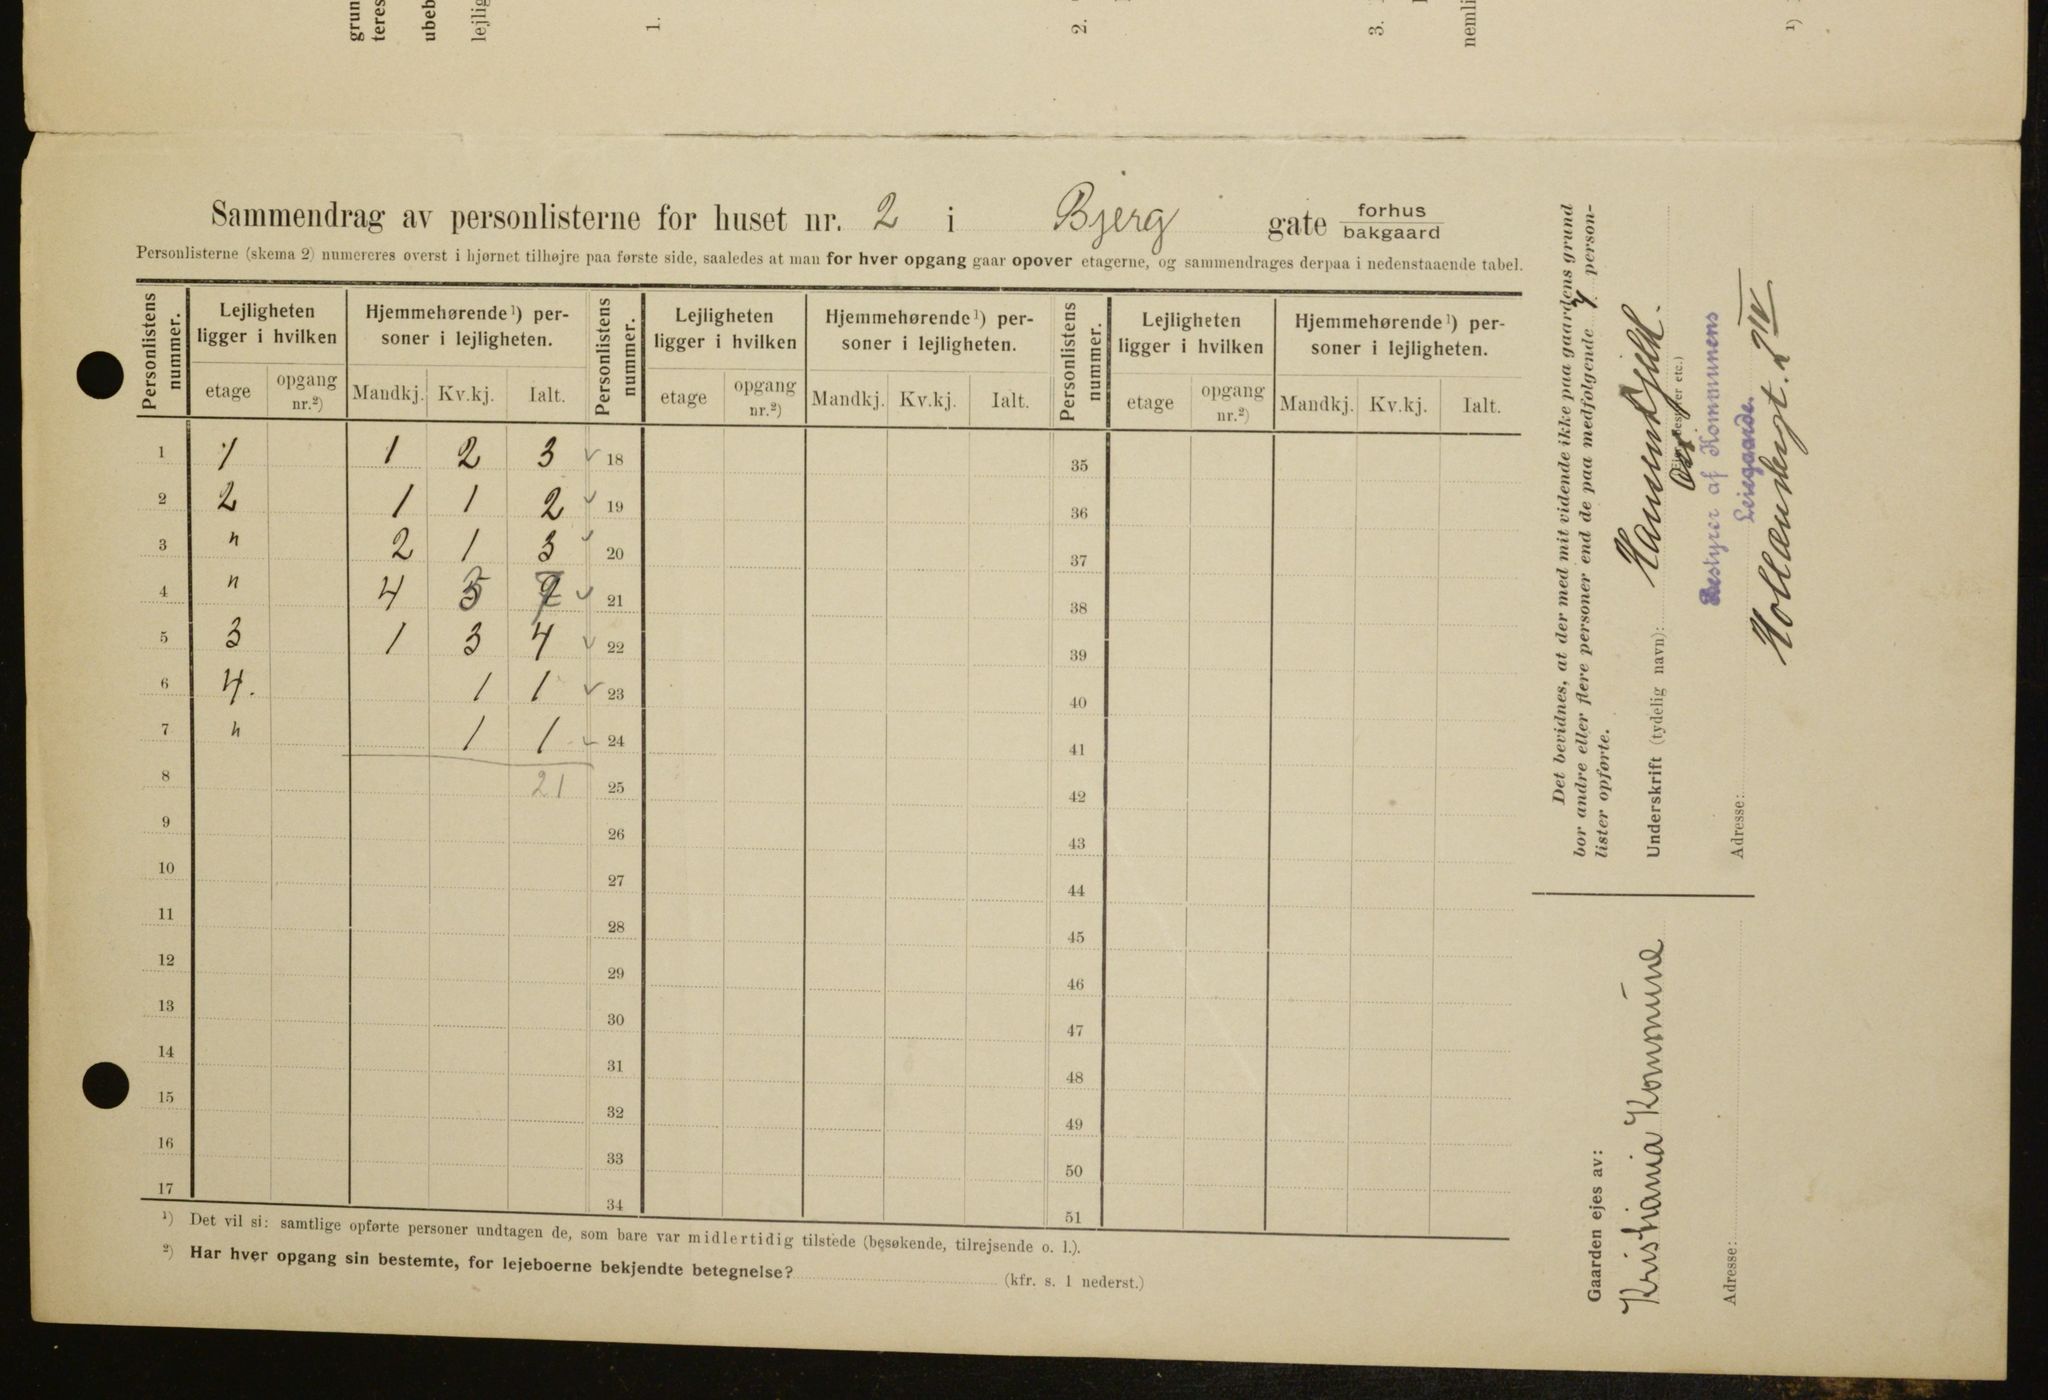 grun
teres
ubeb
lejlig
1.
2.
3.
nemli
¹)
Sammendrag av personlisterne for huset nr. 2 i Bjerg gate forhus
bakgaard
Personlisterne (skema 2) numereres øverst i hjørnet tilhøjre paa første side, saaledes at man for hver opgang gaar opover etagerne, og sammendrages derpaa i nedenstaaende tabel.
Personlistens nummer. Lejligheten ligger i hvilken Hjemmehørende¹) personer i lejligheten. Personlistens nummer. Lejligheten ligger i hvilken Hjemmehørende¹) personer i lejligheten. Personlistens nummer. Lejligheten ligger i hvilken Hjemmehørende¹) personer i lejligheten.
etage opgang nr.²) Mandkj. Kv.kj. Ialt. etage opgang nr.²) Mandkj. Kv.kj. Ialt. etage opgang nr.²) Mandkj. Kv.kj. Ialt.
1 1 1 2 3 18 35
2 2 1 1 2 19 36
3 " 2 1 3 20 37
4 " 4 3 7 21 38
5 3 1 3 4 22 39
6 4. 1 1 23 40
7 " 1 1 24 41
8 21 25 42
9 26 43
10 27 44
11 28 45
12 29 46
13 30 47
14 31 48
15 32 49
16 33 50
17 34 51
¹) Det vil si: samtlige opførte personer undtagen de, som bare var midlertidig tilstede (besøkende, tilrejsende o. l.).
²) Har hver opgang sin bestemte, for lejeboerne bekjendte betegnelse? (kfr. s. 1 nederst.)
Det bevidnes, at der med mit vidende ikke paa gaardens grund
bor andre eller flere personer end de paa medfølgende 7 person-
lister opførte.
Underskrift (tydelig navn):
(Ejer, bestyrer etc.)
Bestyrer af Kommunens
Leiegaarde.
Adresse: Hollændergt. 2 IV
Gaarden ejes av:
Kristiania Kommune
Adresse: